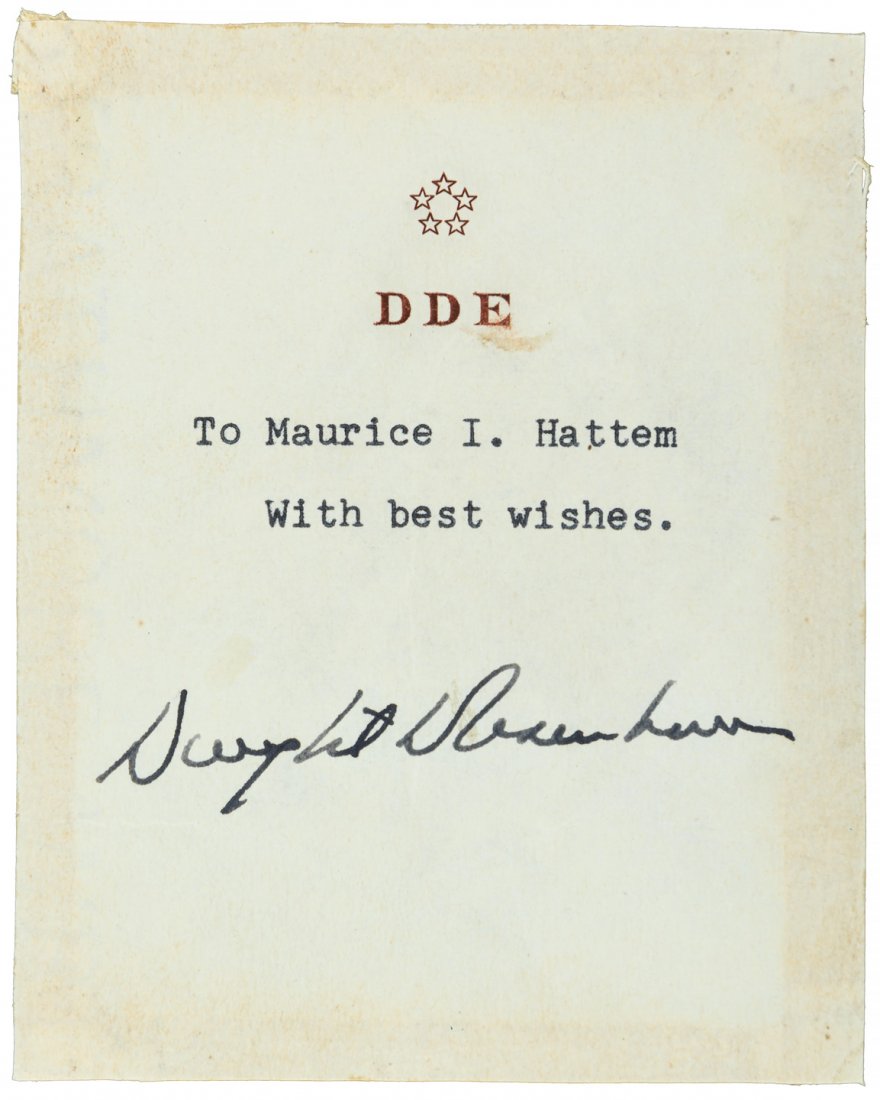 DDE
To Maurice I. Hattem
With best wishes.
Dwight D Eisenhower